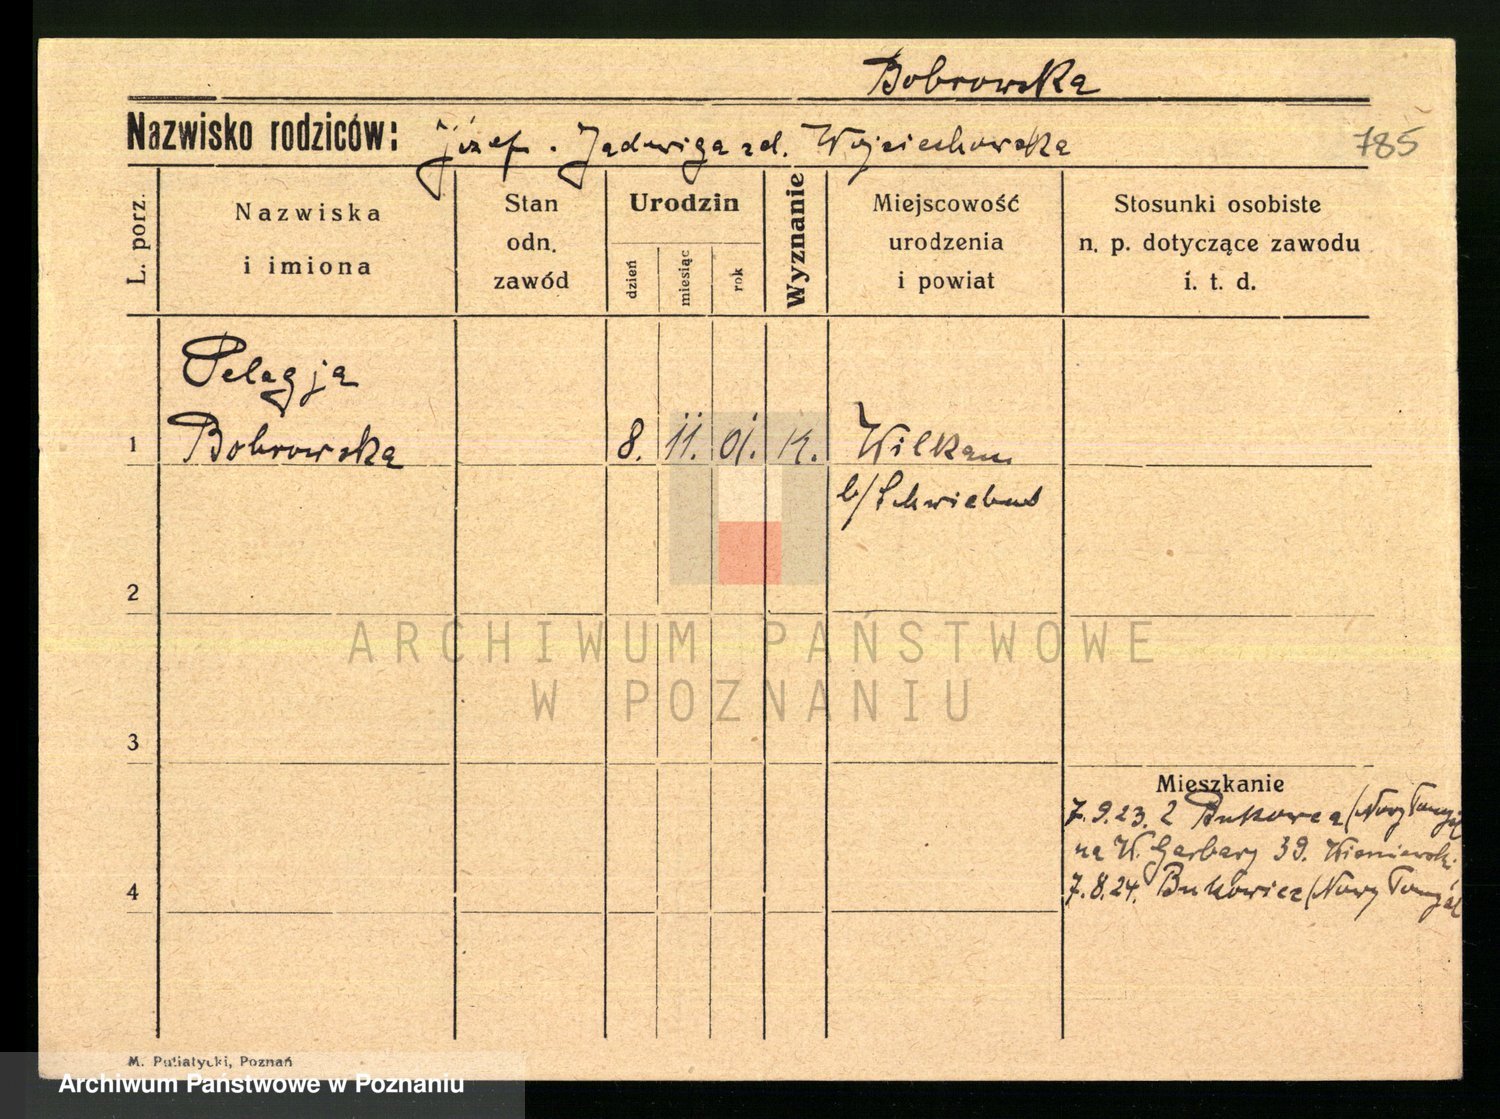 Bobrowska
Nazwisko rodziców: Józef . Jadwiga zd. Wojciechowska
785
L. porz.
Nazwiska
i imiona
Stan
odn.
zawód
Urodzin
dzień
miesiąc
rok
Wyznanie
Miejscowość
urodzenia
i powiat
Stosunki osobiste
n. p. dotyczące zawodu
i. t. d.
Pelagja
1 Bobrowska 8. 11. 01. K. Wilkau
b/Schwiebus
2
ARCHIWUM PAŃSTWOWE
W POZNANIU
3
Mieszkanie
7.9.23. z Bukowca (Nowy Tomyśl
na W. Garbary 39. Wisniewski
4
7.8.24. Bukowiec (Nowy Tomyśl
M. Putiatycki, Poznań
Archiwum Państwowe w Poznaniu